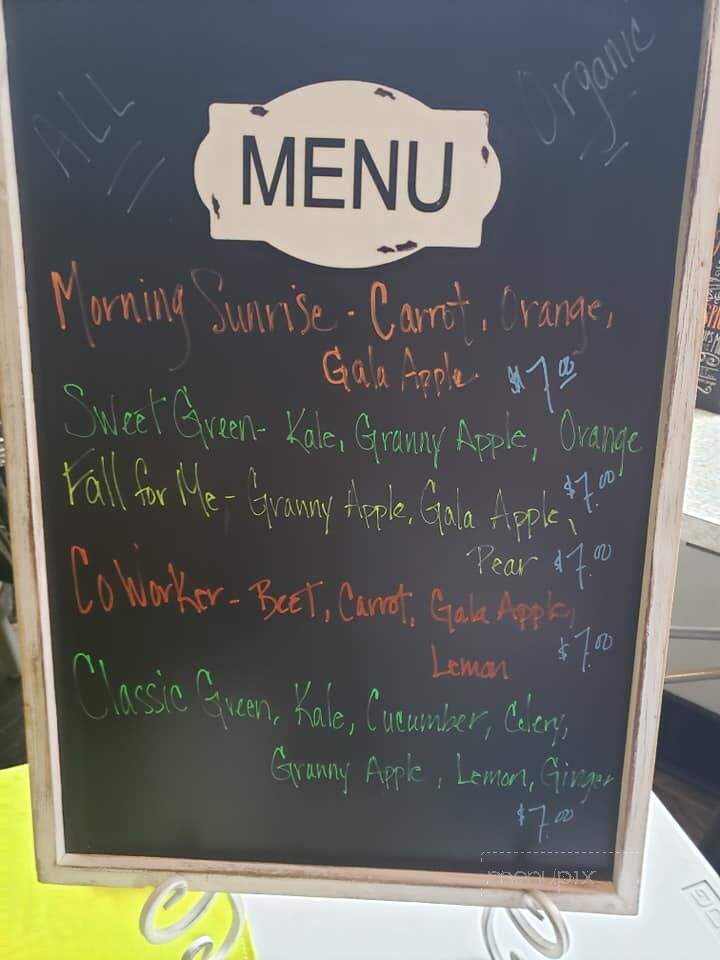 ALL
Organic
MENU
Morning Sunrise - Carrot, Orange,
Gala Apple $7.00
Sweet Green- Kale, Granny Apple, Orange
$7.00
Fall for Me - Granny Apple, Gala Apple,
Pear $7.00
CoWorker - Beet, Carrot, Gala Apple,
Lemon $7.00
Classic Green, Kale, Cucumber, Celery,
Granny Apple, Lemon, Ginger
$7.00
menupix